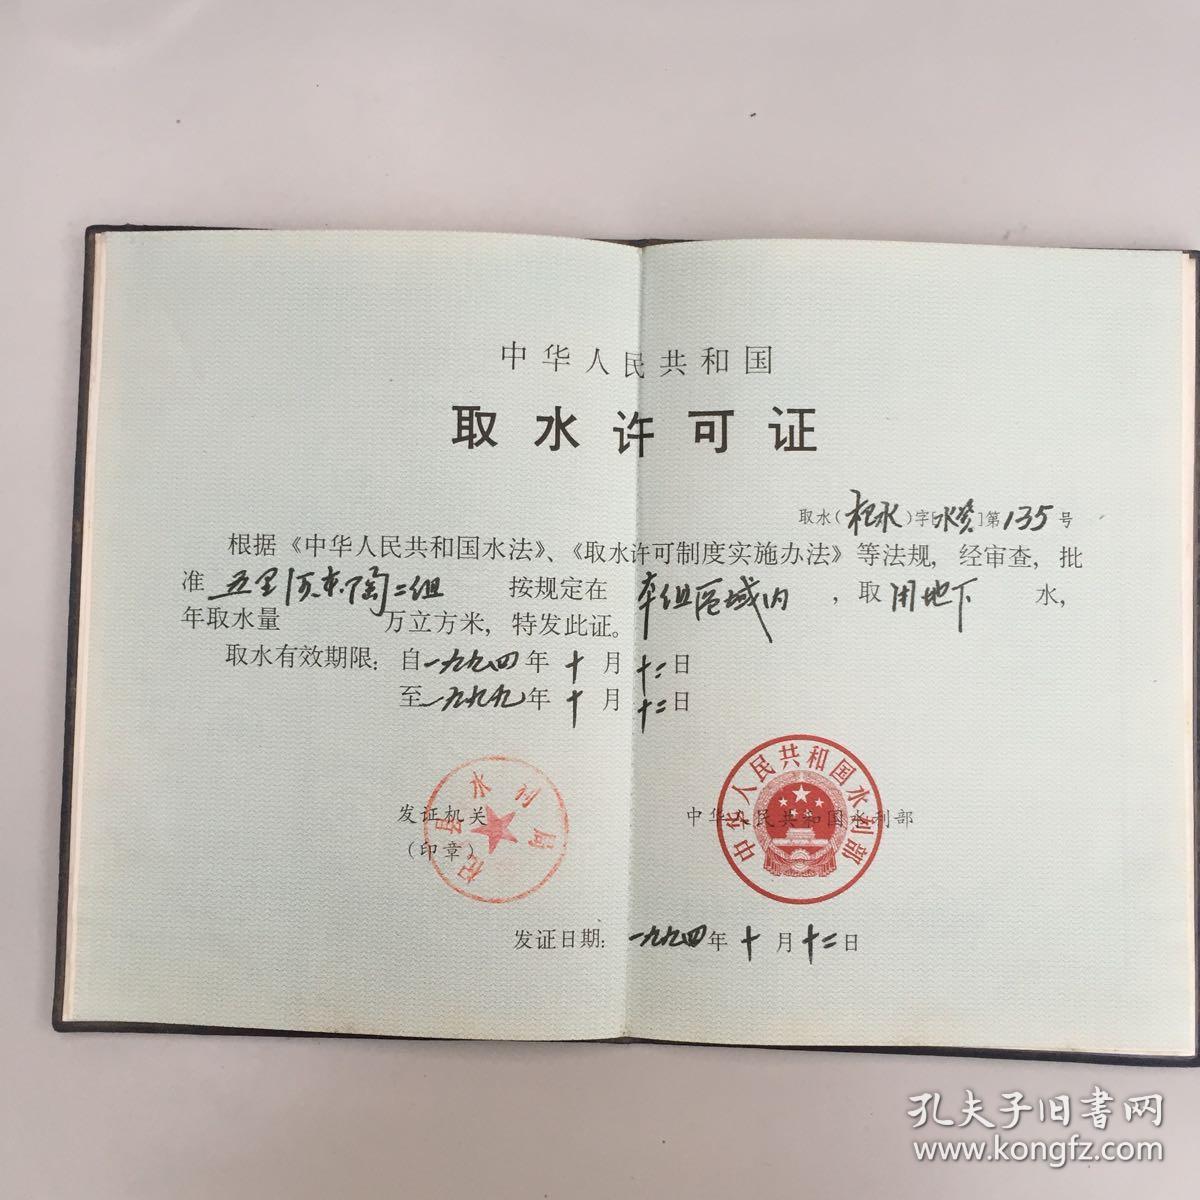 中华人民共和国
取水许可证
取水(杞水)字[水资]第135号
根据《中华人民共和国水法》、《取水许可制度实施办法》等法规,经审查,批
准 五里河东陶二组 按规定在 本组区域内 ,取 用地下 水,
年取水量 万立方米,特发此证。
取水有效期限:自一九九四年十月十二日
至一九九九年十月十二日
发证机关
(印章)
杞县水利局
中华人民共和国水利部
中华人民共和国水利部
发证日期:一九九四年十月十二日
孔夫子旧书网
www.kongfz.com